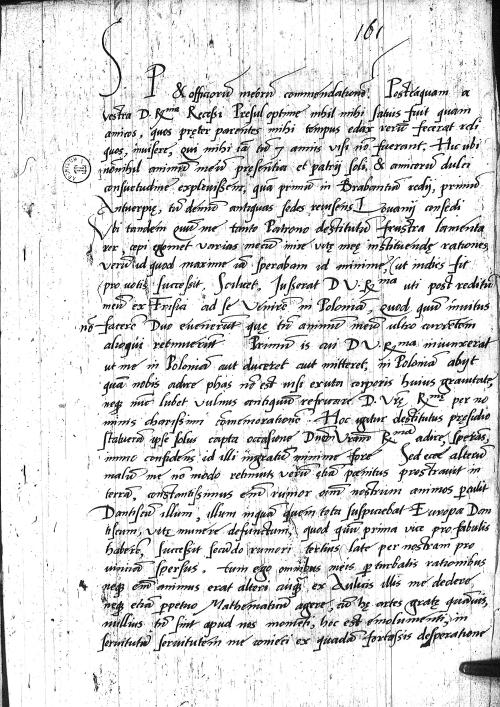 161
S P & officiorum meorum commendationem. Posteaquam a
vestra D. Rma Recessi Presul optime nihil mihi satius fuit quam
amicos, quos preter parentes mihi tempus edax rerum fecerat reli
quos, invisere, qui mihi iam tum 7 annis visi non fuerant. Hic ubi
nonnihil animum meum presentia et patrii soli, & amicorum dulci
consuetudine explevissem, quam primum in Brabantiam redij, primum
Antuerpie, tum demum antiquas sedes revisens Lovanij consedi
Ubi tandem quum me tanto Patrono destitutum frustra lamenta
rer, cepi egomet varias mecum inire vite mee instituende rationes,
verum id quod maxime iam sperabam id minime, (ut indies fit
pro votis successit, Scilicet, Iusserat D V. Rma uti post reditum
meum ex Frisia ad se venirem in Poloniam, quod quum invitus
non facerem Duo evenerunt que tum animum meum ultro currentem
alioqui retinuerunt Primum is cui D V Rma iniunxerat
ut me in Poloniam aut duceret aut mitteret, in Poloniam abijt
quam nobis adire phas non est nisi exuta corporis huius gravitate
neque nunc lubet vulnus antiquum refricare D. Vre Rme per no
minis charissimi commemorationem. Hoc igitur destitutus presidio
statueram ipse solus capta occasione Dnom Vram Rmam adire, sperans,
immo confidens id illi ingratum minime fore Sed ecce alterum
malum me non modo retinuit, verum etiam penitus prostravit in
terram, constantissimus enim rumor omnium nostrum animos perculit
Dantiscum illum, illum inquam quem tota suspiciebat Europa Dan
tiscum, vite munere defunctum, quod quum prima vice pro fabulis
haberem, successit secundo rumori tertius late per nostram pro
vinciam sparsus, tum ego omnibus meis perturbatis rationibus
neque enim animus erat alteri cuiquam ex Aulicis illis me dedere
neque etiam perpetuo Mathematicum agere, cum he artes grate quamvis,
nullius tamen sint apud nos momenti, hoc est emolumenti, in
servitutem servitutem me conieci ex quadam fortassis desperatione